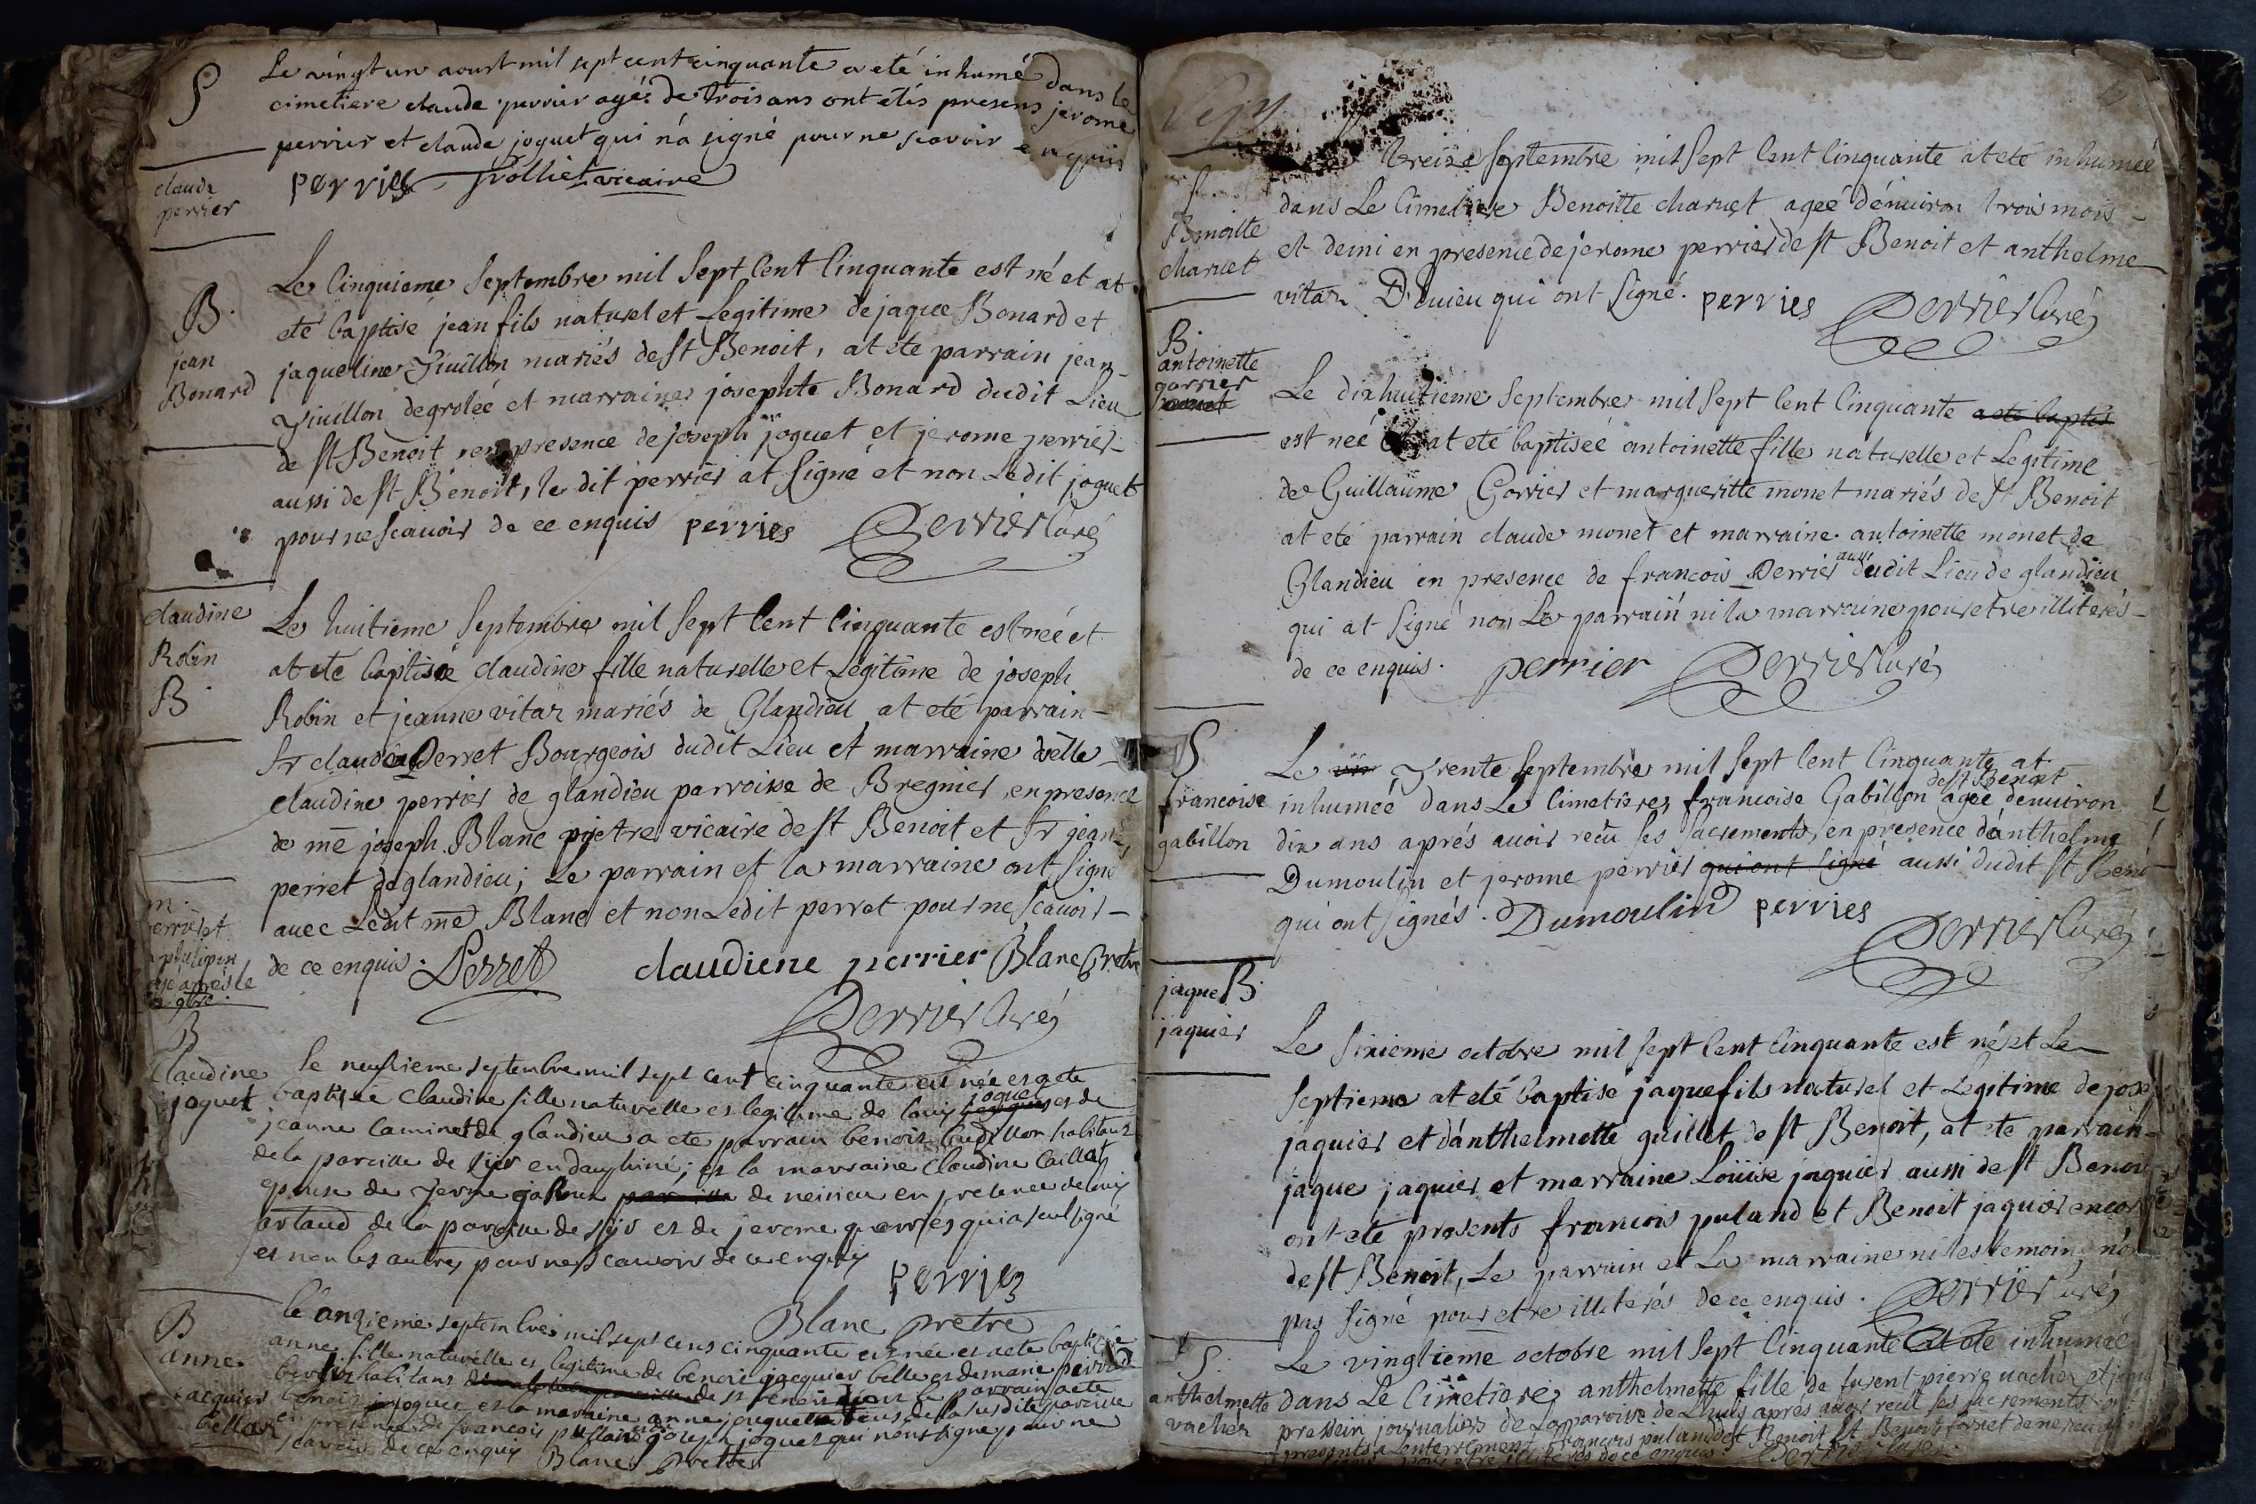 S
claude
perrier
Le vingt un aoust mil sept cent cinquante a eté inhumé dans le
cimetiere claude perrier agé de trois ans ont etés presens jerome
perrier et claude joguet qui n'a signé pour ne scavoir enquis
perries Trolliet vicaire
B.
jean
Bonard
Le Cinquieme Septembre mil Sept Cent Cinquante est né et at
eté baptise jean fils naturel et Legitime de jaque Bonard et
jaqueline Yvuillon mariés de St Benoit, at ete parrain jean
Yvuillon degrolée et marraine josephte Bonard dudit Lieu
de St Benoit, en presence de joseph joguet et jerome perrier
aussi de St Benoit, le dit perrier at Signé et non Ledit joguet
pour ne Scavoir de ce enquis perries Perrier Curé
claudine
Robin
B
Le huitieme Septembre mil Sept Cent Cinquante est neé et
at eté baptisée claudine fille naturelle et Legitime de joseph
Robin et jeanne vitaz mariés de Glandieu at eté parrain
Sr claude Perret Bourgeois dudit Lieu et marraine delle
claudine perrier de glandieu parroisse de Bregnier en presence
de me joseph Blanc prêtre vicaire de St Benoit et Sr jean
perret de glandieu; Le parrain et la marraine ont Signé
avec Ledit me Blanc et non Ledit perret pour ne Scavoir
de ce enquis. Perret claudiene perrier Blanc Pretre
Perrier Curé
B
Claudine
joguet
le neufvieme septembre mil sept cent cinquante est née et a ete
baptisée Claudine fille naturelle et legitime de louis joguet et de
jeanne Caminet de glandieu a ete parrain benoit habitant
de la paroisse de en dauphiné; et la marraine Claudine Caillat
epouse de de en presence de louis
artaud de la paroisse de et de jerome perrier qui a seul signé
et non les autres pour ne scavoir de ce enquis
perries
Blanc prêtre
B
anne
jacquier
bellar
le onzieme septembre mil sept cens cinquante est née et a ete baptisée
anne fille naturelle et legitime de benoit jacquier belle et de marie
habitans de st benoit le parrain a ete
benoit joguet et la marraine anne de la susdite paroisse
en presence de francois joseph joguet qui n'ont signé pour ne
scavoir de ce enquis Blanc prêtre
S
Benoitte
charuet
treize Septembre mil Sept Cent Cinquante at eté inhumeé
dans Le Cimetiere Benoitte charuet ageé d'énuiron trois mois
et demi en presence de jerome perrier de St Benoit et anthelme
vitaz D'euieu qui ont Signé. perries Perrier Curé
B.
antoinette
gorrier
Le dixhuitieme Septembre mil Sept Cent Cinquante a eté baptis
est neé et at eté baptiseé antoinette fille naturelle et Legitime
de Guillaume Gorrier et margueritte monet mariés de St Benoit
at eté parrain claude monet et marraine antoinette monet de
Glandieu en presence de francois Perrier aussi dudit Lieu de glandieu
qui at Signé non Le parrain ni la marraine pour etre illiterés
de ce enquis. perrier Perrier Curé
S
francoise
gabillon
Le Trente Septembre mil Sept Cent Cinquante at
inhumeé dans Le Cimetiere francoise Gabillon de St Benoit ageé denuiron
dix ans aprés auoir recu ses Sacrements, en presence d'anthelme
Dumoulin et jerome perrier qui ont Signé aussi dudit St Benoit
qui ont signés. Dumoulin perries
Perrier Curé
B.
jaque
jaquier
Le Sixieme octobre mil Sept Cent Cinquante est né et Le
Septieme at eté baptise jaque fils naturel et Legitime de
jaquier et d'anthelmette guillet de St Benoit, at ete parrain
jaque jaquier et marraine Louise jaquier aussi de St Benoit
ont ete presents francois puland et Benoit jaquier encore
de St Benoit, Le parrain et La marraine ni les temoins n'ont
pas Signé pour etre illiterés de ce enquis. Perrier Curé
S.
anthelmette
vacher
Le vingtieme octobre mil Sept Cinquante at eté inhumeé
dans Le Cimetiere anthelmette fille de furent pierre vacher et
pressein journalier de La paroisse de Lhuis aprés auoir receu ses sacrements
presents a Lenterrement francois puland et Benoit
pour etre illiterés de ce enquis. Perrier Curé